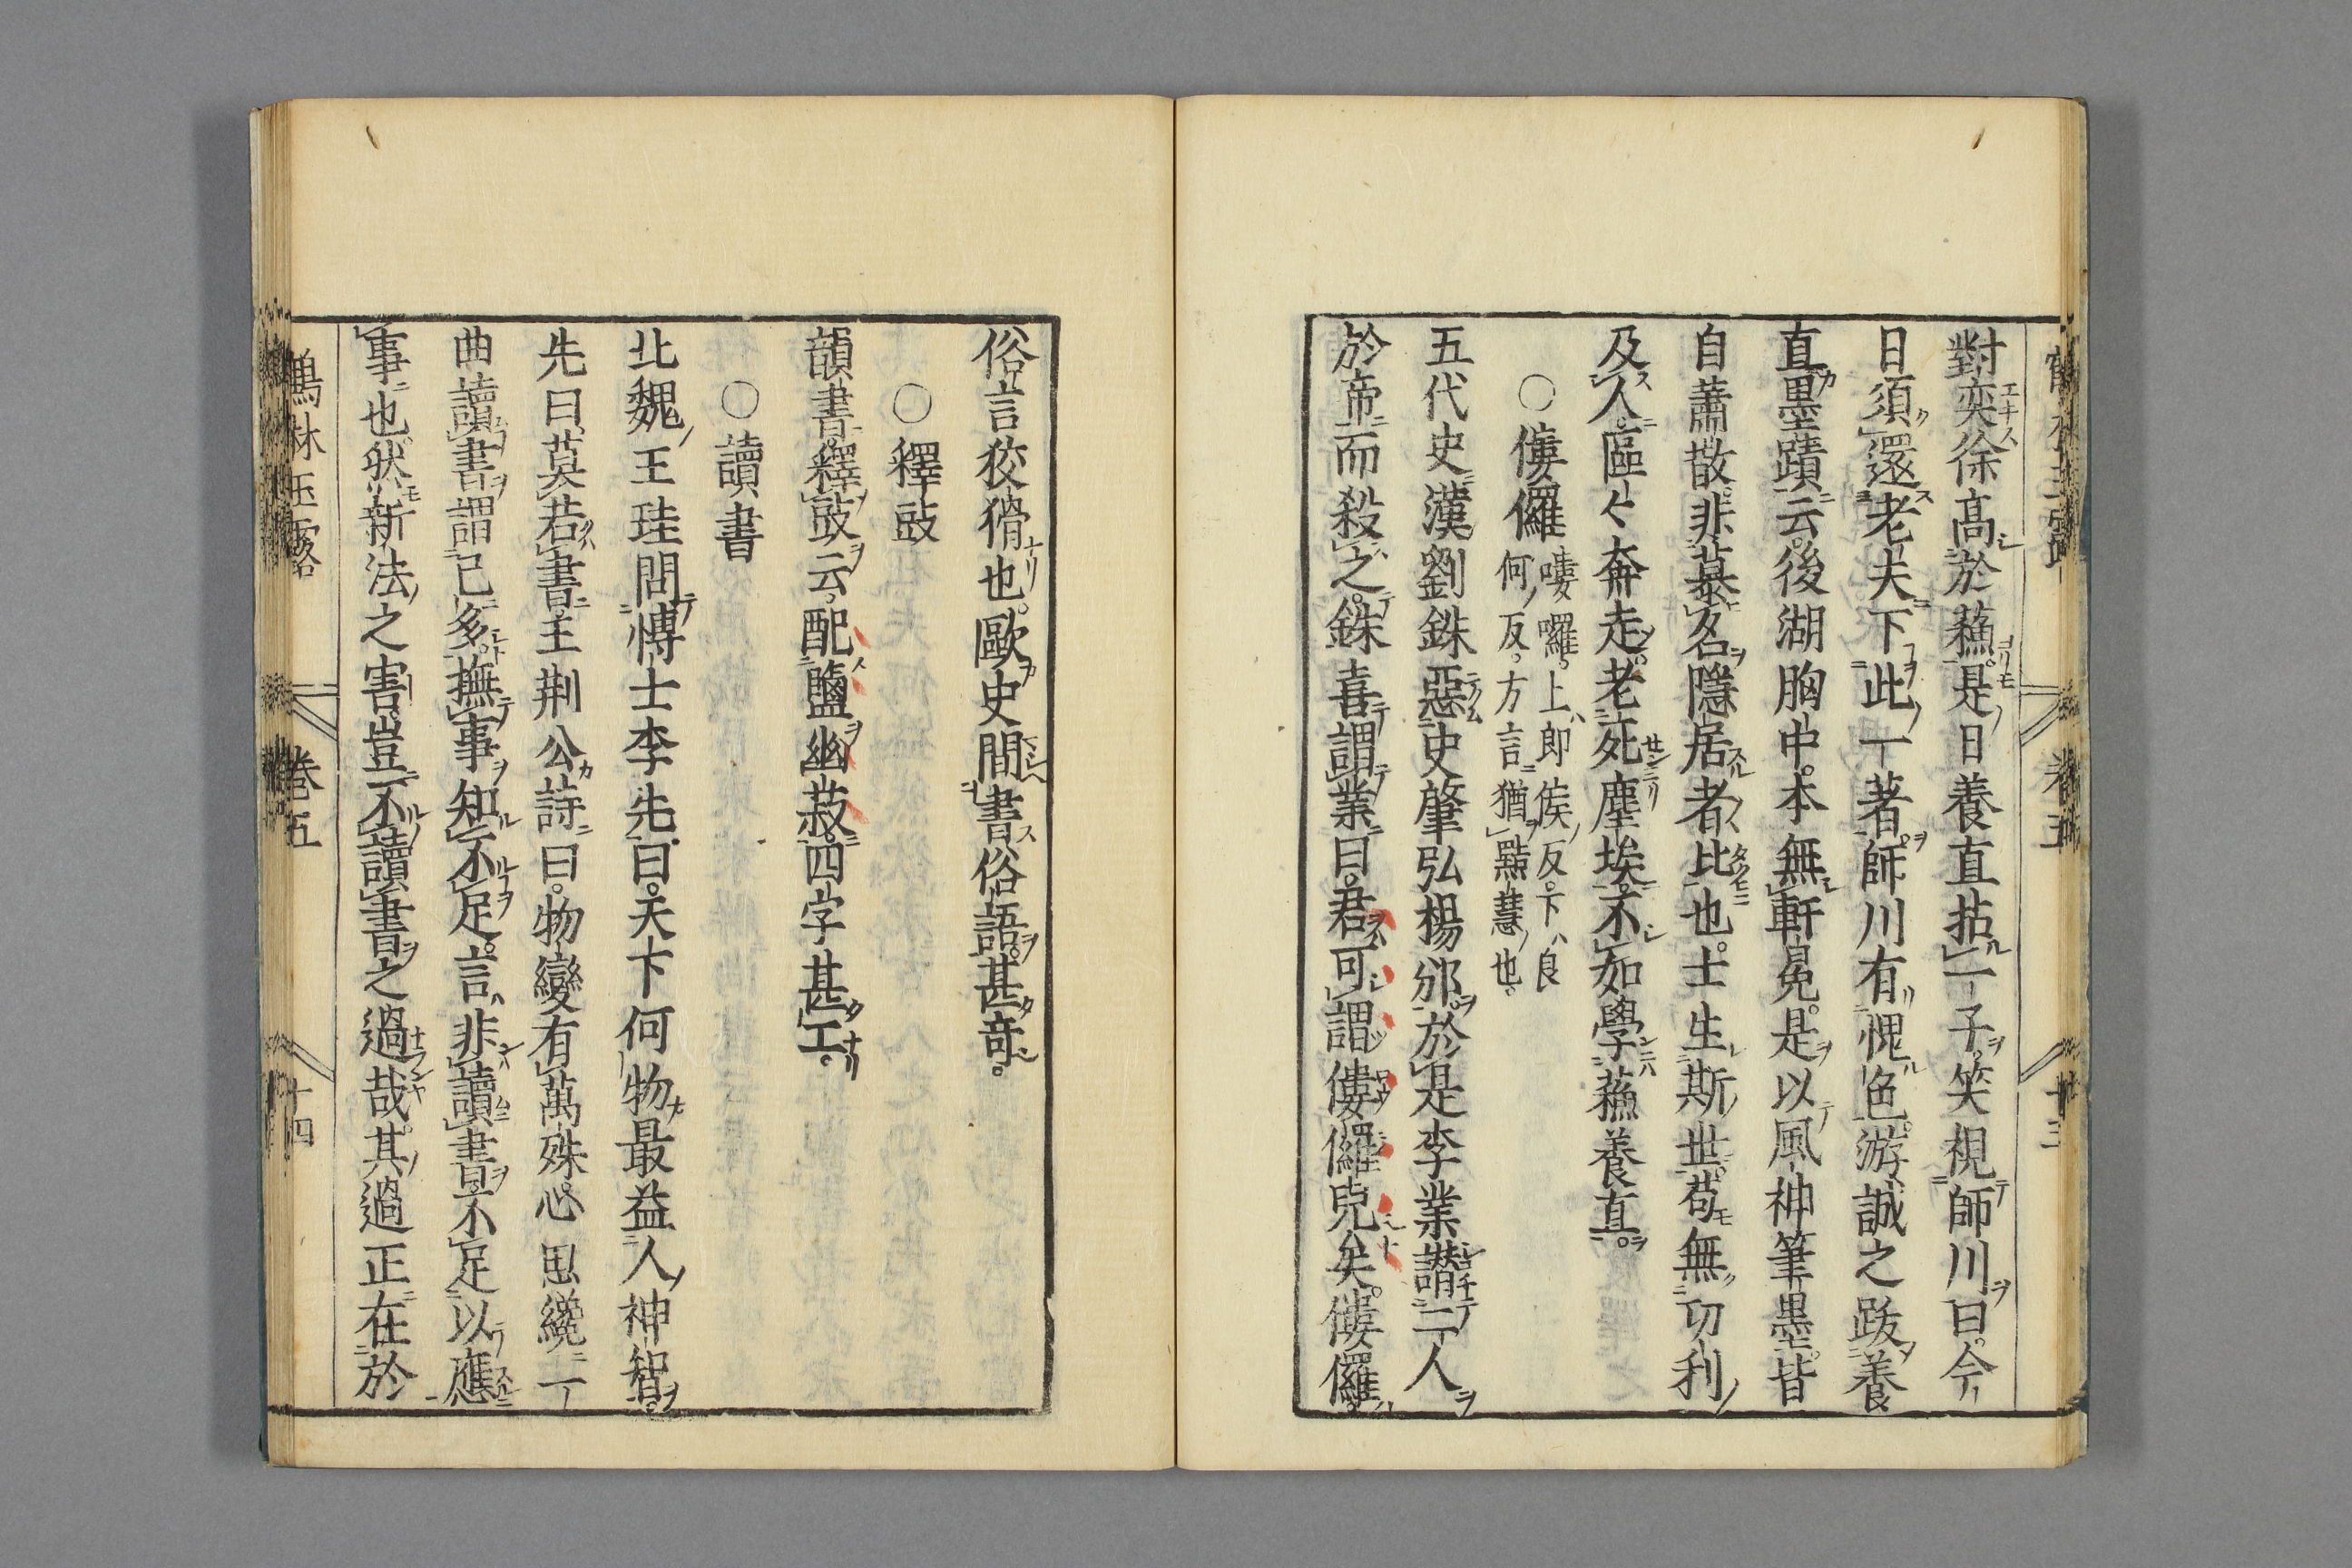 對奕徐高於蘓是日養直拈一子笑視師川曰今
日須還老夫下此一著師川有愧色游誠之跋養
直墨蹟云後湖胸中本無軒冕是以風神筆墨皆
自蕭散非慕名隱居者比也士生斯世苟無功利
及人區〻奔走老死塵埃不如學蘓養直
○僂儸
嘍囉上即侯反下良
何反方言猶黠慧也
五代史漢劉銖惡史肇弘楊邠於是李業譖二人
於帝而殺之銖喜謂業曰君可謂僂儸兒矣僂儸
俗言狡猾也歐史間書俗語甚奇
○釋䜴
韻書釋䜴云配鹽幽菽四字甚工
○讀書
北魏王珪問博士李先曰天下何物最益人神智
先曰莫若書王荆公詩曰物變有萬殊心思纔一
曲讀書謂已多撫事知不足言非讀書不足以應
事也然新法之害豈不讀書之過哉其過正在於
鶴林玉露　卷五　十四